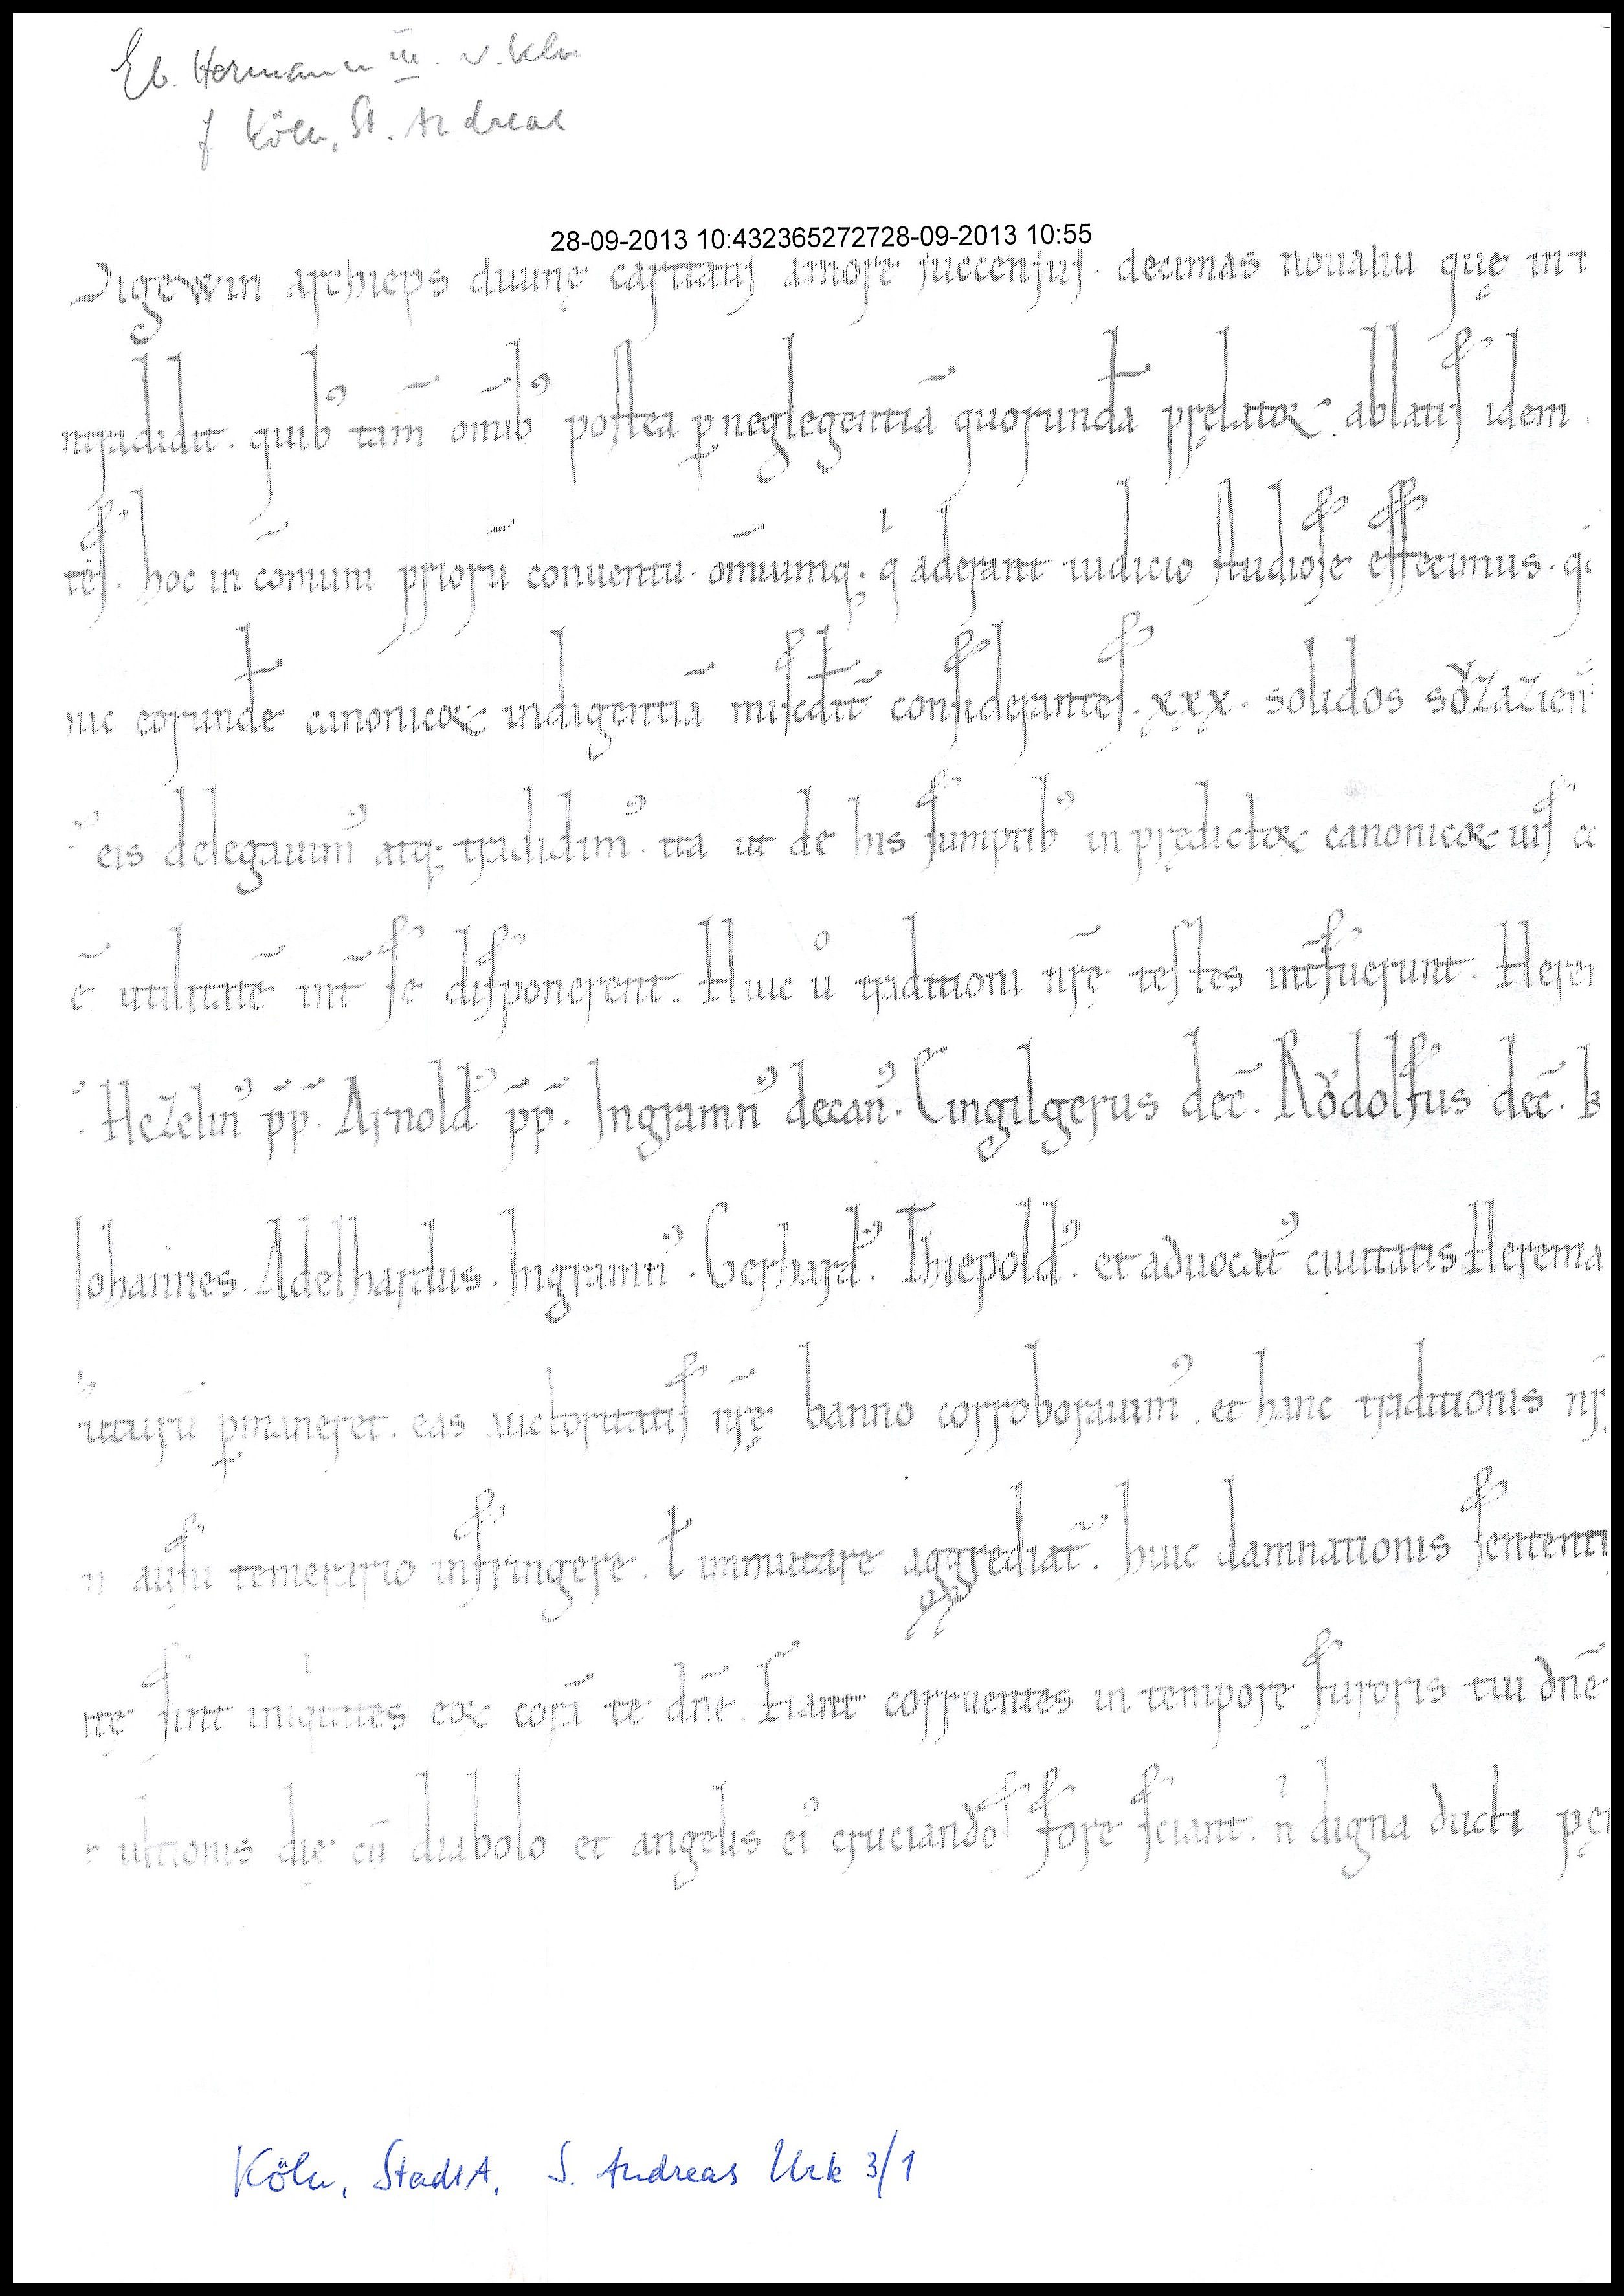 Eb. Hermann III. v. Köln
f Köln, St. Andreas
28-09-2013 10:432365272728-09-2013 10:55
Sigewin archieps diuinę caritatis amore succensus. decimas noualiū quę in t
ntradidit. quibꝰ tam̄ om̄ibꝰ postea ꝑ neglegentiā quorundā pręlatoꝝ. ablatis idem.
tes. hoc in cōmuni priorū conuentu. om̄iumq; qͥ aderant iudicio studiose effecimus. q
nic eorundē canonicoꝝ indigentiā mis̄cdit̄ considerantes. xxx. solidos sůzazien̄
eis delegauimꝰ atq; tradidimꝰ. ita ut de his sumptibꝰ in prędictoꝝ canonicoꝝ usꝰ c
ē utilitatē int̄ se disponerent. Huic ů traditioni nr̄ę testes int̄fuerunt. Herem
Hezelinꝰ pp̄. Arnoldꝰ pp̄. Ingramnꝰ decanꝰ. Cingilgerus dec̄. Růdolfus dec̄. b
Iohannes. Adelhardus. Ingramnꝰ. Gerhardꝰ. Thiepoldꝰ. et aduocatꝰ ciuitatis Herema
uturū ꝑmaneret. eas auctoritatis nr̄ę banno corroborauimꝰ. et hanc traditionis nr
ausu temerario infringere. ł immutare aggrediat̄. huic damnationis sententi
ntę sint iniqͥtates eoꝝ corā te dn̄e. Fiant corruentes in tempore furoris tui dn̄e
r ultionis die cū diabolo et angelis eiꝰ cruciandos fore sciant. n̄ digna ducti pęn
Köln, StadtA, S. Andreas Urk 3/1